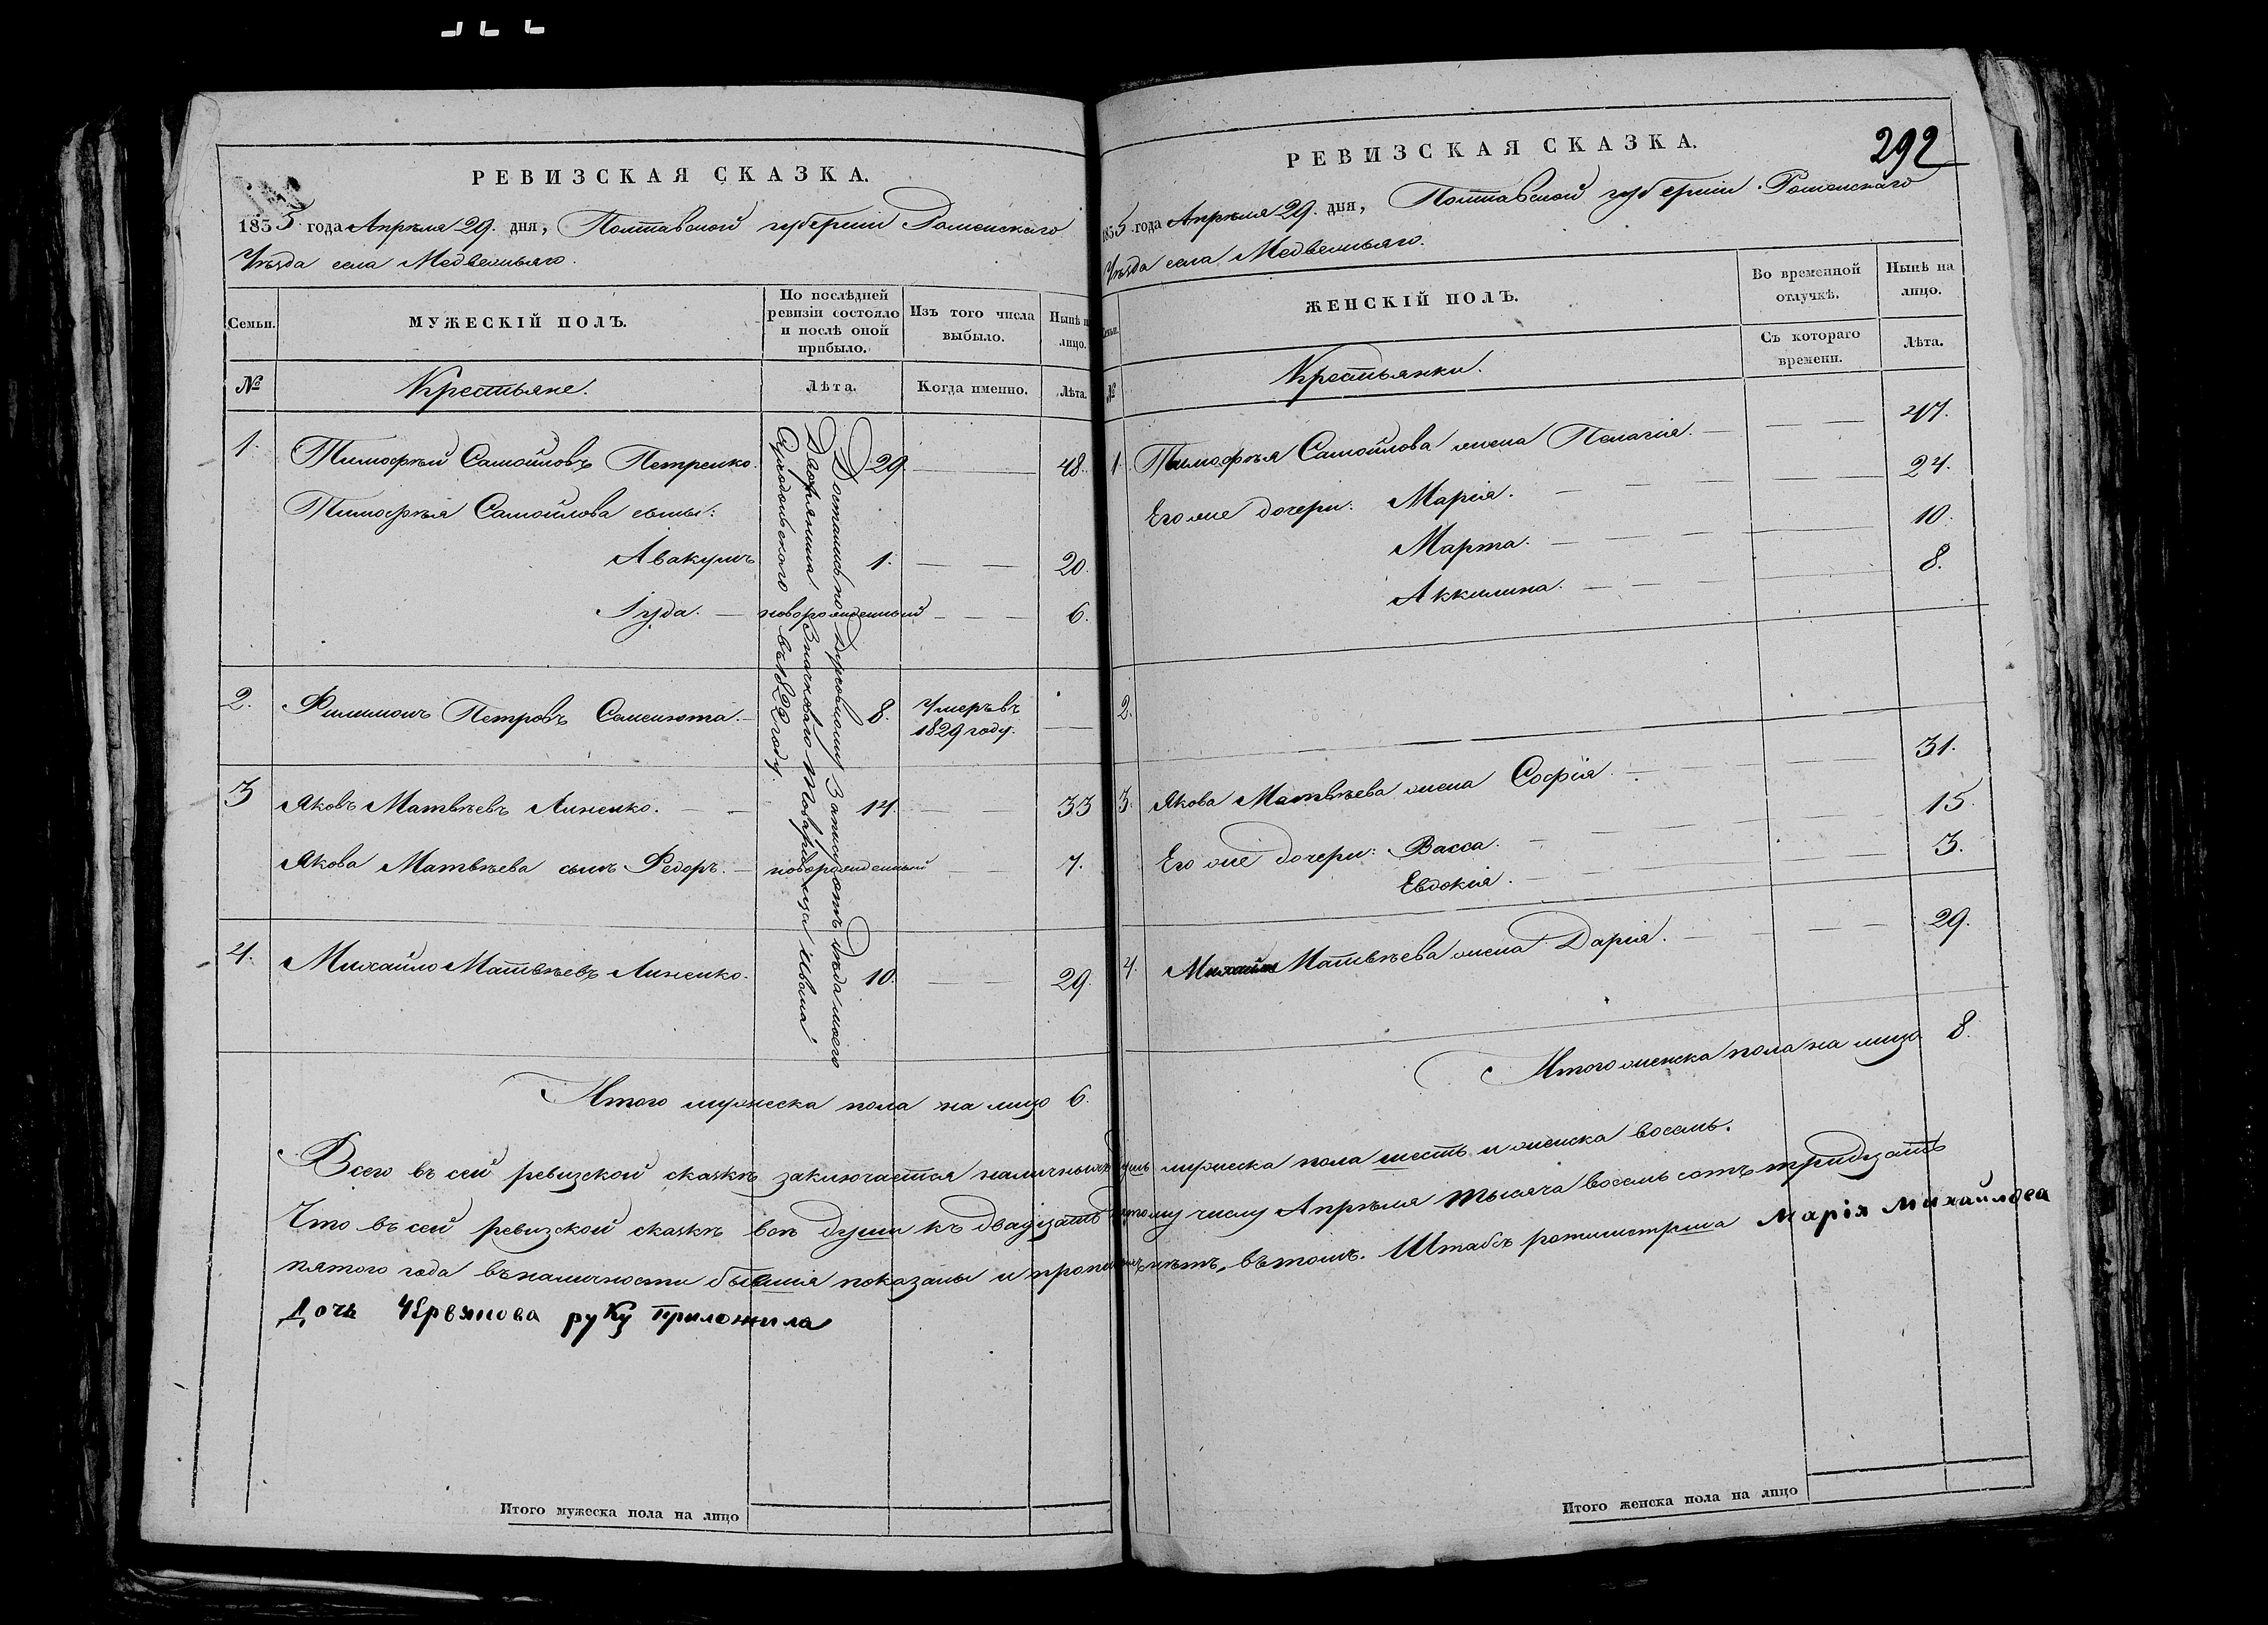 РЕВИЗСКАЯ СКАЗКА.
1835 года Апрѣля 29. дня, Полтавской губерніи Роменскаго
Уѣзда села Медвежьяго.
Семьи.
МУЖЕСКІЙ ПОЛЪ.
По послѣдней ревизіи состояло и послѣ оной прибыло.
Изъ того числа выбыло.
Нынѣ на лицо.
№
Крестьяне.
Лѣта.
Когда именно.
Лѣта.
1. Тимофѣй Самойловъ Петренко. 29. 48.
Тимофѣя Самойлова сыны:
Авакумъ 1. 20.
Іуда. новорожденный 6.
2. Филимонъ Петровъ Саменюта. 8. Умеръ въ 1829 году.
3 Яковъ Матвѣевъ Линенко. 14. 33
Якова Матвѣева сынъ Федоръ. новорожденный 7.
4. Михайло Матвѣевъ Линенко. 10. 29.
Достались по духовному Запису отъ дѣда моего
Дворянина Значковаго Товарища Ивана
въ 1822 году.
Итого мужеска пола на лицо 6.
Итого мужеска пола на лицо
292
РЕВИЗСКАЯ СКАЗКА.
1835 года Апрѣля 29. дня, Полтавской губерніи Роменскаго
Уѣзда села Медвежьяго.
Семьи.
ЖЕНСКІЙ ПОЛЪ.
Во временной отлучкѣ.
Нынѣ на лицо.
№
Крестьянки.
Съ котораго времени.
Лѣта.
1. Тимофѣя Самойлова жена Пелагія. 47.
Его же дочери: Марія. 24.
Марта. 10.
Аккилина. 8.
2.
3. Якова Матвѣева жена Софія. 31.
Его же дочери: Васса. 15.
Евдокія. 3.
4. Михайла Матвѣева жена Дарія. 29.
Итого женска пола на лицо 8.
Всего въ сей ревизской сказкѣ заключается наличныхъ душъ мужеска пола шесть и женска восемь.
Что въ сей ревизской сказкѣ всѣ души къ двадцать числу Апрѣля тысяча восемь сотъ тридцать
пятого года въ наличности бывшія показаны и нѣтъ, въ томъ. Штабсъ ротмистрша Марія Михаилова
Дочь Червякова руку приложила
Итого женска пола на лицо